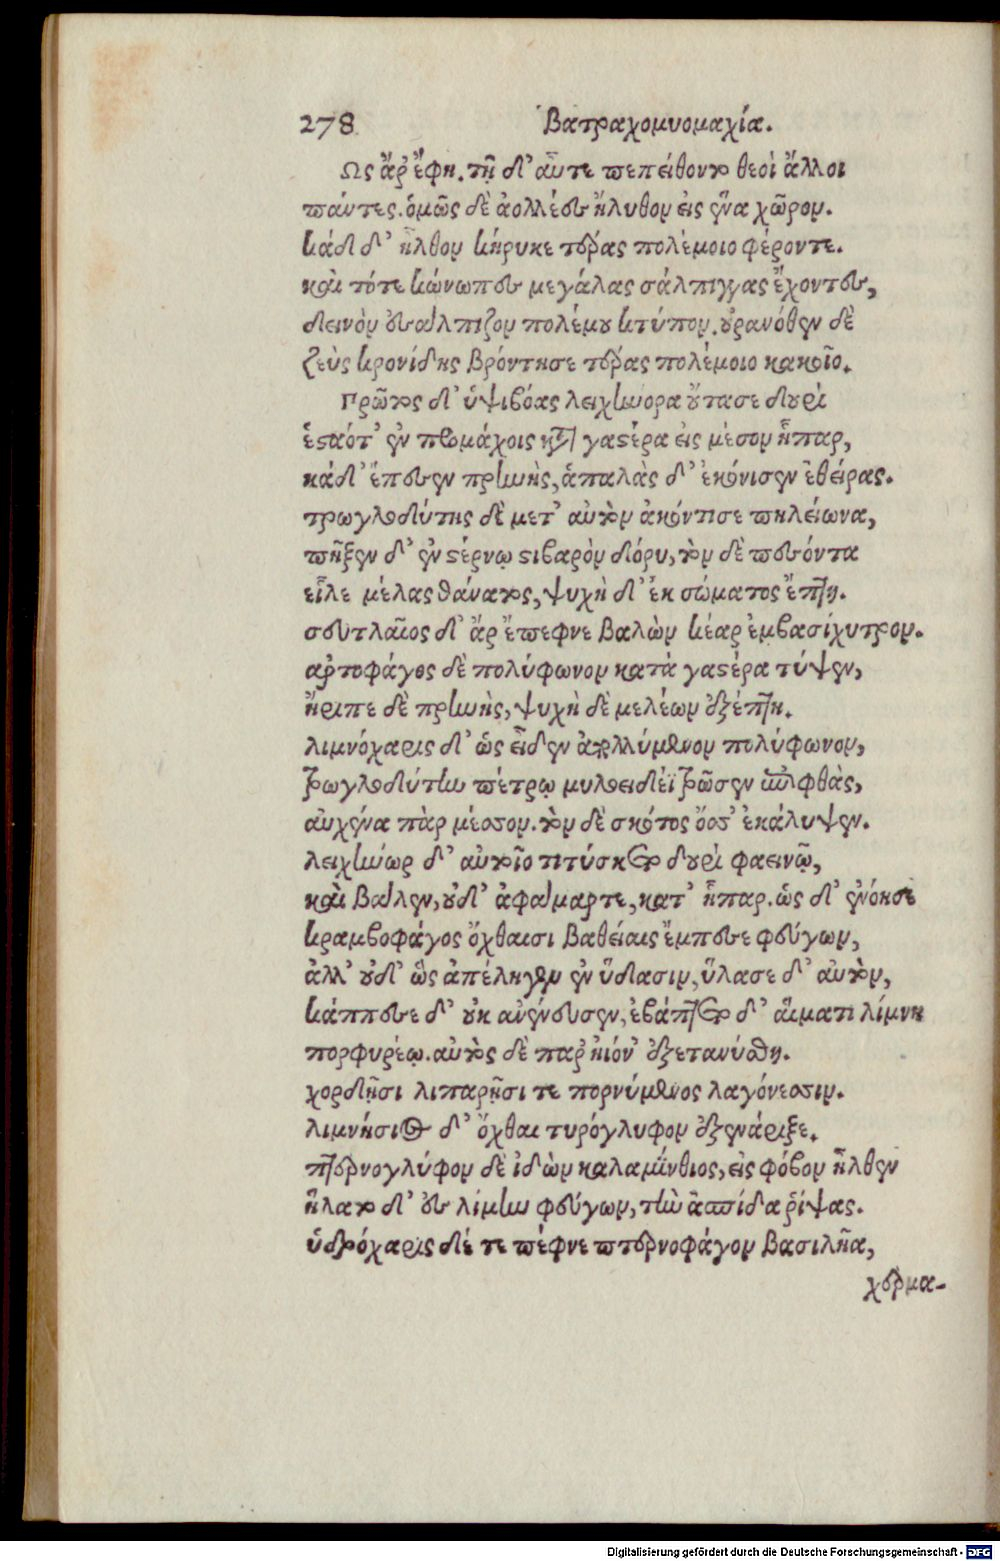 278 Βατραχομυομαχία.
Ως ἄρ ἔφη. τῇ δ' αὖτε πεπείθοντο θεοὶ ἄλλοι
πάντες. ὁμῶς δὲ ἀολλέες ἤλυθον εἰς ἕνα χῶρον.
κάδ δ' ἦλθον κήρυκε τέρας πολέμοιο φέροντε.
καὶ τότε κώνωπες μεγάλας σάλπιγγας ἔχοντες,
δεινὸν ἐσάλπιζον πολέμου κτύπον. οὐρανόθεν δὲ
ζεὺς κρονίδης βρόντησε τέρας πολέμοιο κακοῖο.
Πρῶτος δ' ὑψιβόας λειχήνορα οὔτασε δουρὶ
ἑσταότ' ἐν προμάχοις κατὰ γαστέρα εἰς μέσον ἧπαρ,
κάδ' ἔπεσεν πρηνὴς, ἁπαλὰς δ' ἐκόνισεν ἐθείρας.
τρωγλοδύτης δὲ μετ' αὐτὸν ἀκόντισε πηλείωνα,
πῆξεν δ' ἐν στέρνῳ στιβαρὸν δόρυ, τὸν δὲ πεσόντα
εἷλε μέλας θάνατος, ψυχὴ δ' ἐκ σώματος ἔπτη.
σευτλαῖος δ' ἄρ ἔπεφνε βαλὼν κέαρ ἐμβασίχυτρον.
αρτοφάγος δὲ πολύφωνον κατὰ γαστέρα τύψεν,
ἤριπε δὲ πρηνὴς, ψυχὴ δὲ μελέων ἐξέπτη.
λιμνόχαρις δ' ὡς εἶδεν ἀπολλύμενον πολύφωνον,
τρωγλοδύτην πέτρῳ μυλοειδέϊ τρῶσεν ἐπιφθὰς,
αὐχένα πὰρ μέσσον. τὸν δὲ σκότος ὄσσ' ἐκάλυψεν.
λειχήνωρ δ' αὐτοῖο τιτύσκετο δουρὶ φαεινῷ,
καὶ βάλεν, οὐδ' ἀφάμαρτε, κατ' ἧπαρ. ὡς δ' ἐνόησε
κραμβοφάγος ὄχθαισι βαθείαις ἔμπεσε φεύγων,
ἀλλ' οὐδ' ὣς ἀπέληγεν ἐν ὕδασιν, ὕλασε δ' αὐτὸν,
κάππεσε δ' οὐκ ἀνένευσεν, ἐβάπτετο δ' αἵματι λίμνη
πορφυρέῳ. αὐτὸς δὲ παρ' ἠϊόν' ἐξετανύσθη.
χορδῇσι λιπαρῇσι τε πορνύμενος λαγόνεσσιν.
λιμνήσιος δ' ὄχθαι τυρόγλυφον ἐξενάριξε.
πτερνογλύφον δὲ ἰδὼν καλαμίνθιος, εἰς φόβον ἦλθεν
ἥλατο δ' ἐς λίμνην φεύγων, τὴν ἀσπίδα ῥίψας.
ὑδρόχαρις δέ τε πέφνε πτερνοφάγον βασιλῆα,
χερμα-
Digitalisierung gefördert durch die Deutsche Forschungsgemeinschaft - DFG